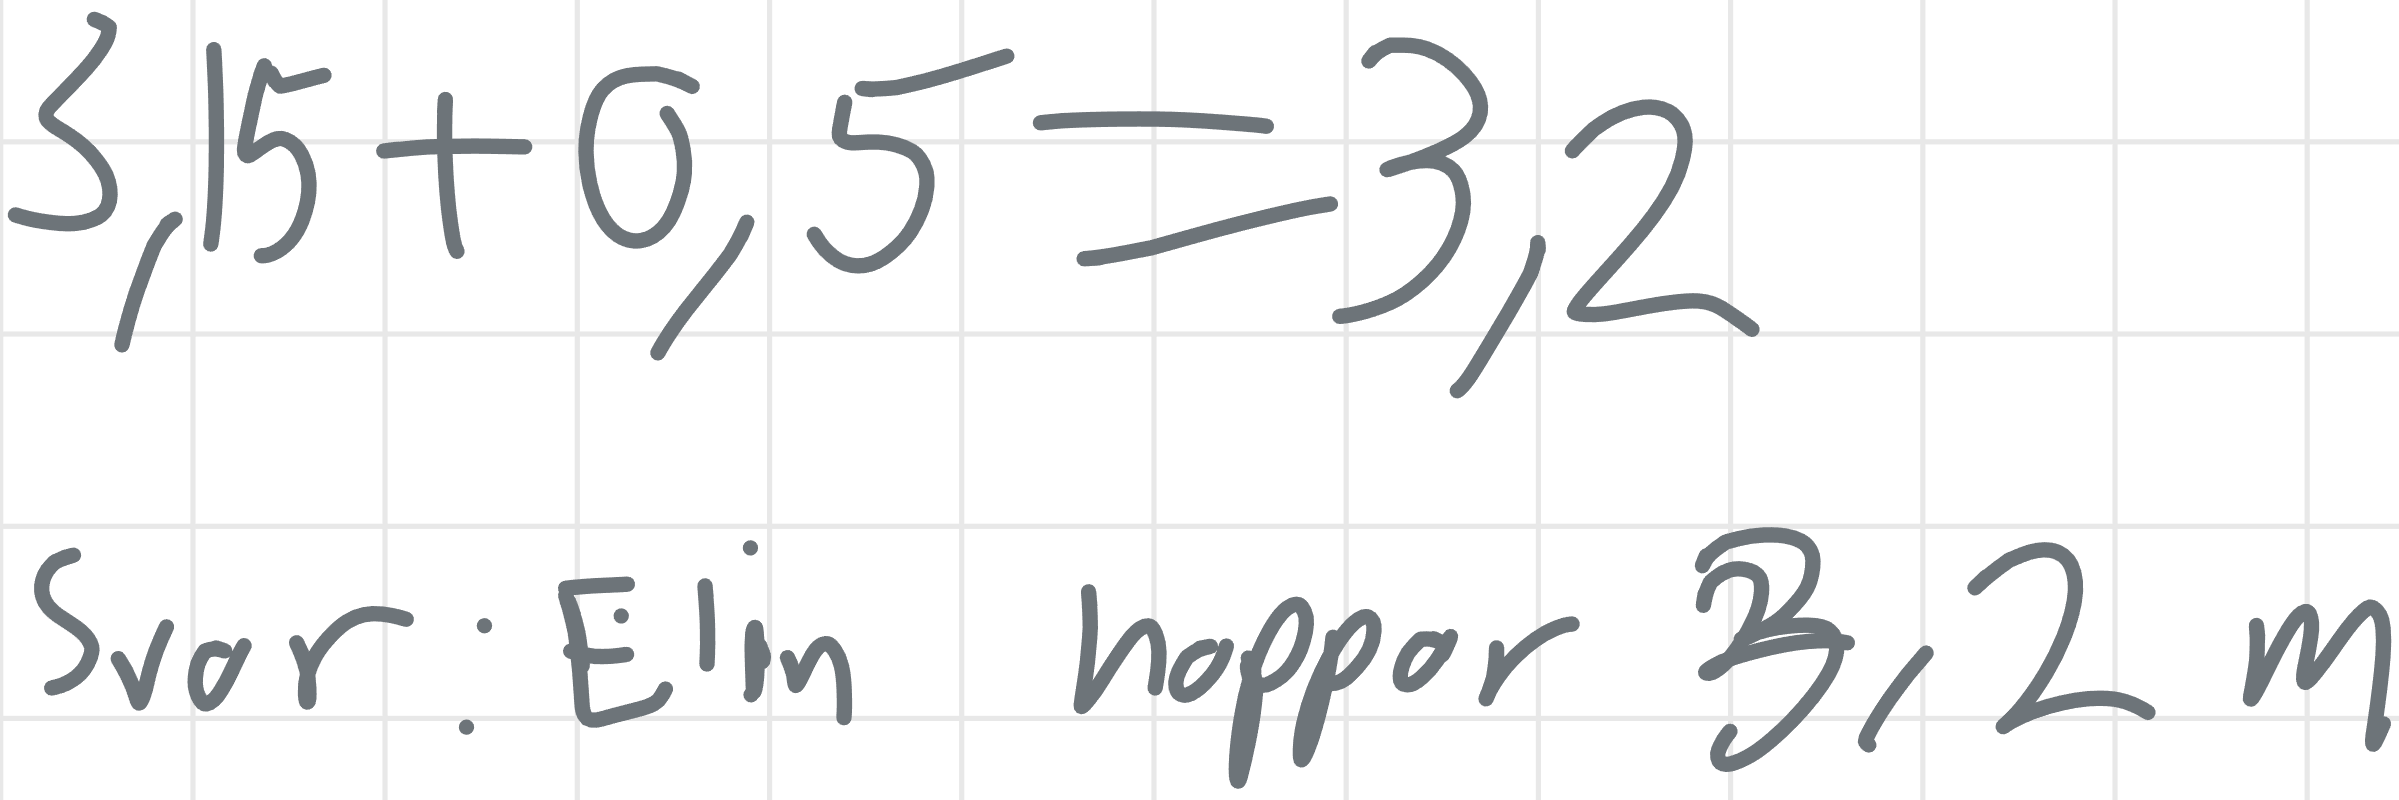 3,15+0,5=3,2
Svar: Elin hoppar 3,2 m